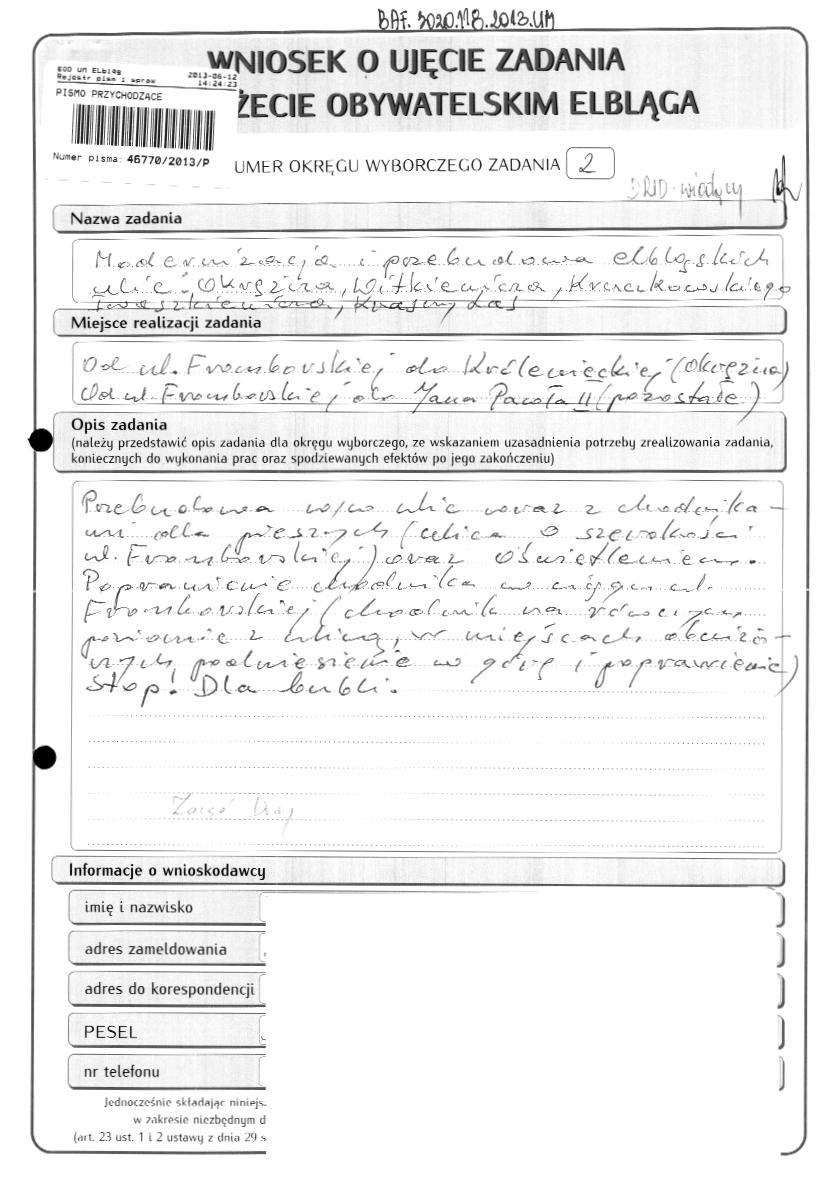 BAF. 3020.118.2013.UM
WNIOSEK O UJĘCIE ZADANIA
ŻECIE OBYWATELSKIM ELBLĄGA
EOD UM Elbląg
Rejestr pism i spraw
2013-06-12
14:24:23
PISMO PRZYCHODZACE
Numer pisma: 46770/2013/P
UMER OKRĘGU WYBORCZEGO ZADANIA 2
DRID - wiodący
Nazwa zadania
Modernizacja i przebudowa elbląskich
ulic: Okrężna, Witkiewicza, Kruczkowskiego
Iwaszkiewicza, Krasny Las
Miejsce realizacji zadania
Od ul. Fromborskiej do Królewieckiej (Okrężna)
Od ul. Fromborskiej do Jana Pawła II (pozostałe)
Opis zadania
(należy przedstawić opis zadania dla okręgu wyborczego, ze wskazaniem uzasadnienia potrzeby zrealizowania zadania,
koniecznych do wykonania prac oraz spodziewanych efektów po jego zakończeniu)
Przebudowa w/w ulic wraz z chodnika-
mi dla pieszych (ulica o szerokości
ul. Fromborskiej) oraz oświetleniem.
Poprawienie chodnika w ciągu ul.
Fromborskiej (chodnik na równym
poziomie z ulicą, w miejscach obniżo-
nych podniesienie w górę i poprawienie)
Stop! Dla bubli.
Informacje o wnioskodawcy
imię i nazwisko
adres zameldowania
adres do korespondencji
PESEL
nr telefonu
Jednocześnie składając niniejs
w zakresie niezbędnym d
(art. 23 ust. 1 i 2 ustawy z dnia 29 s